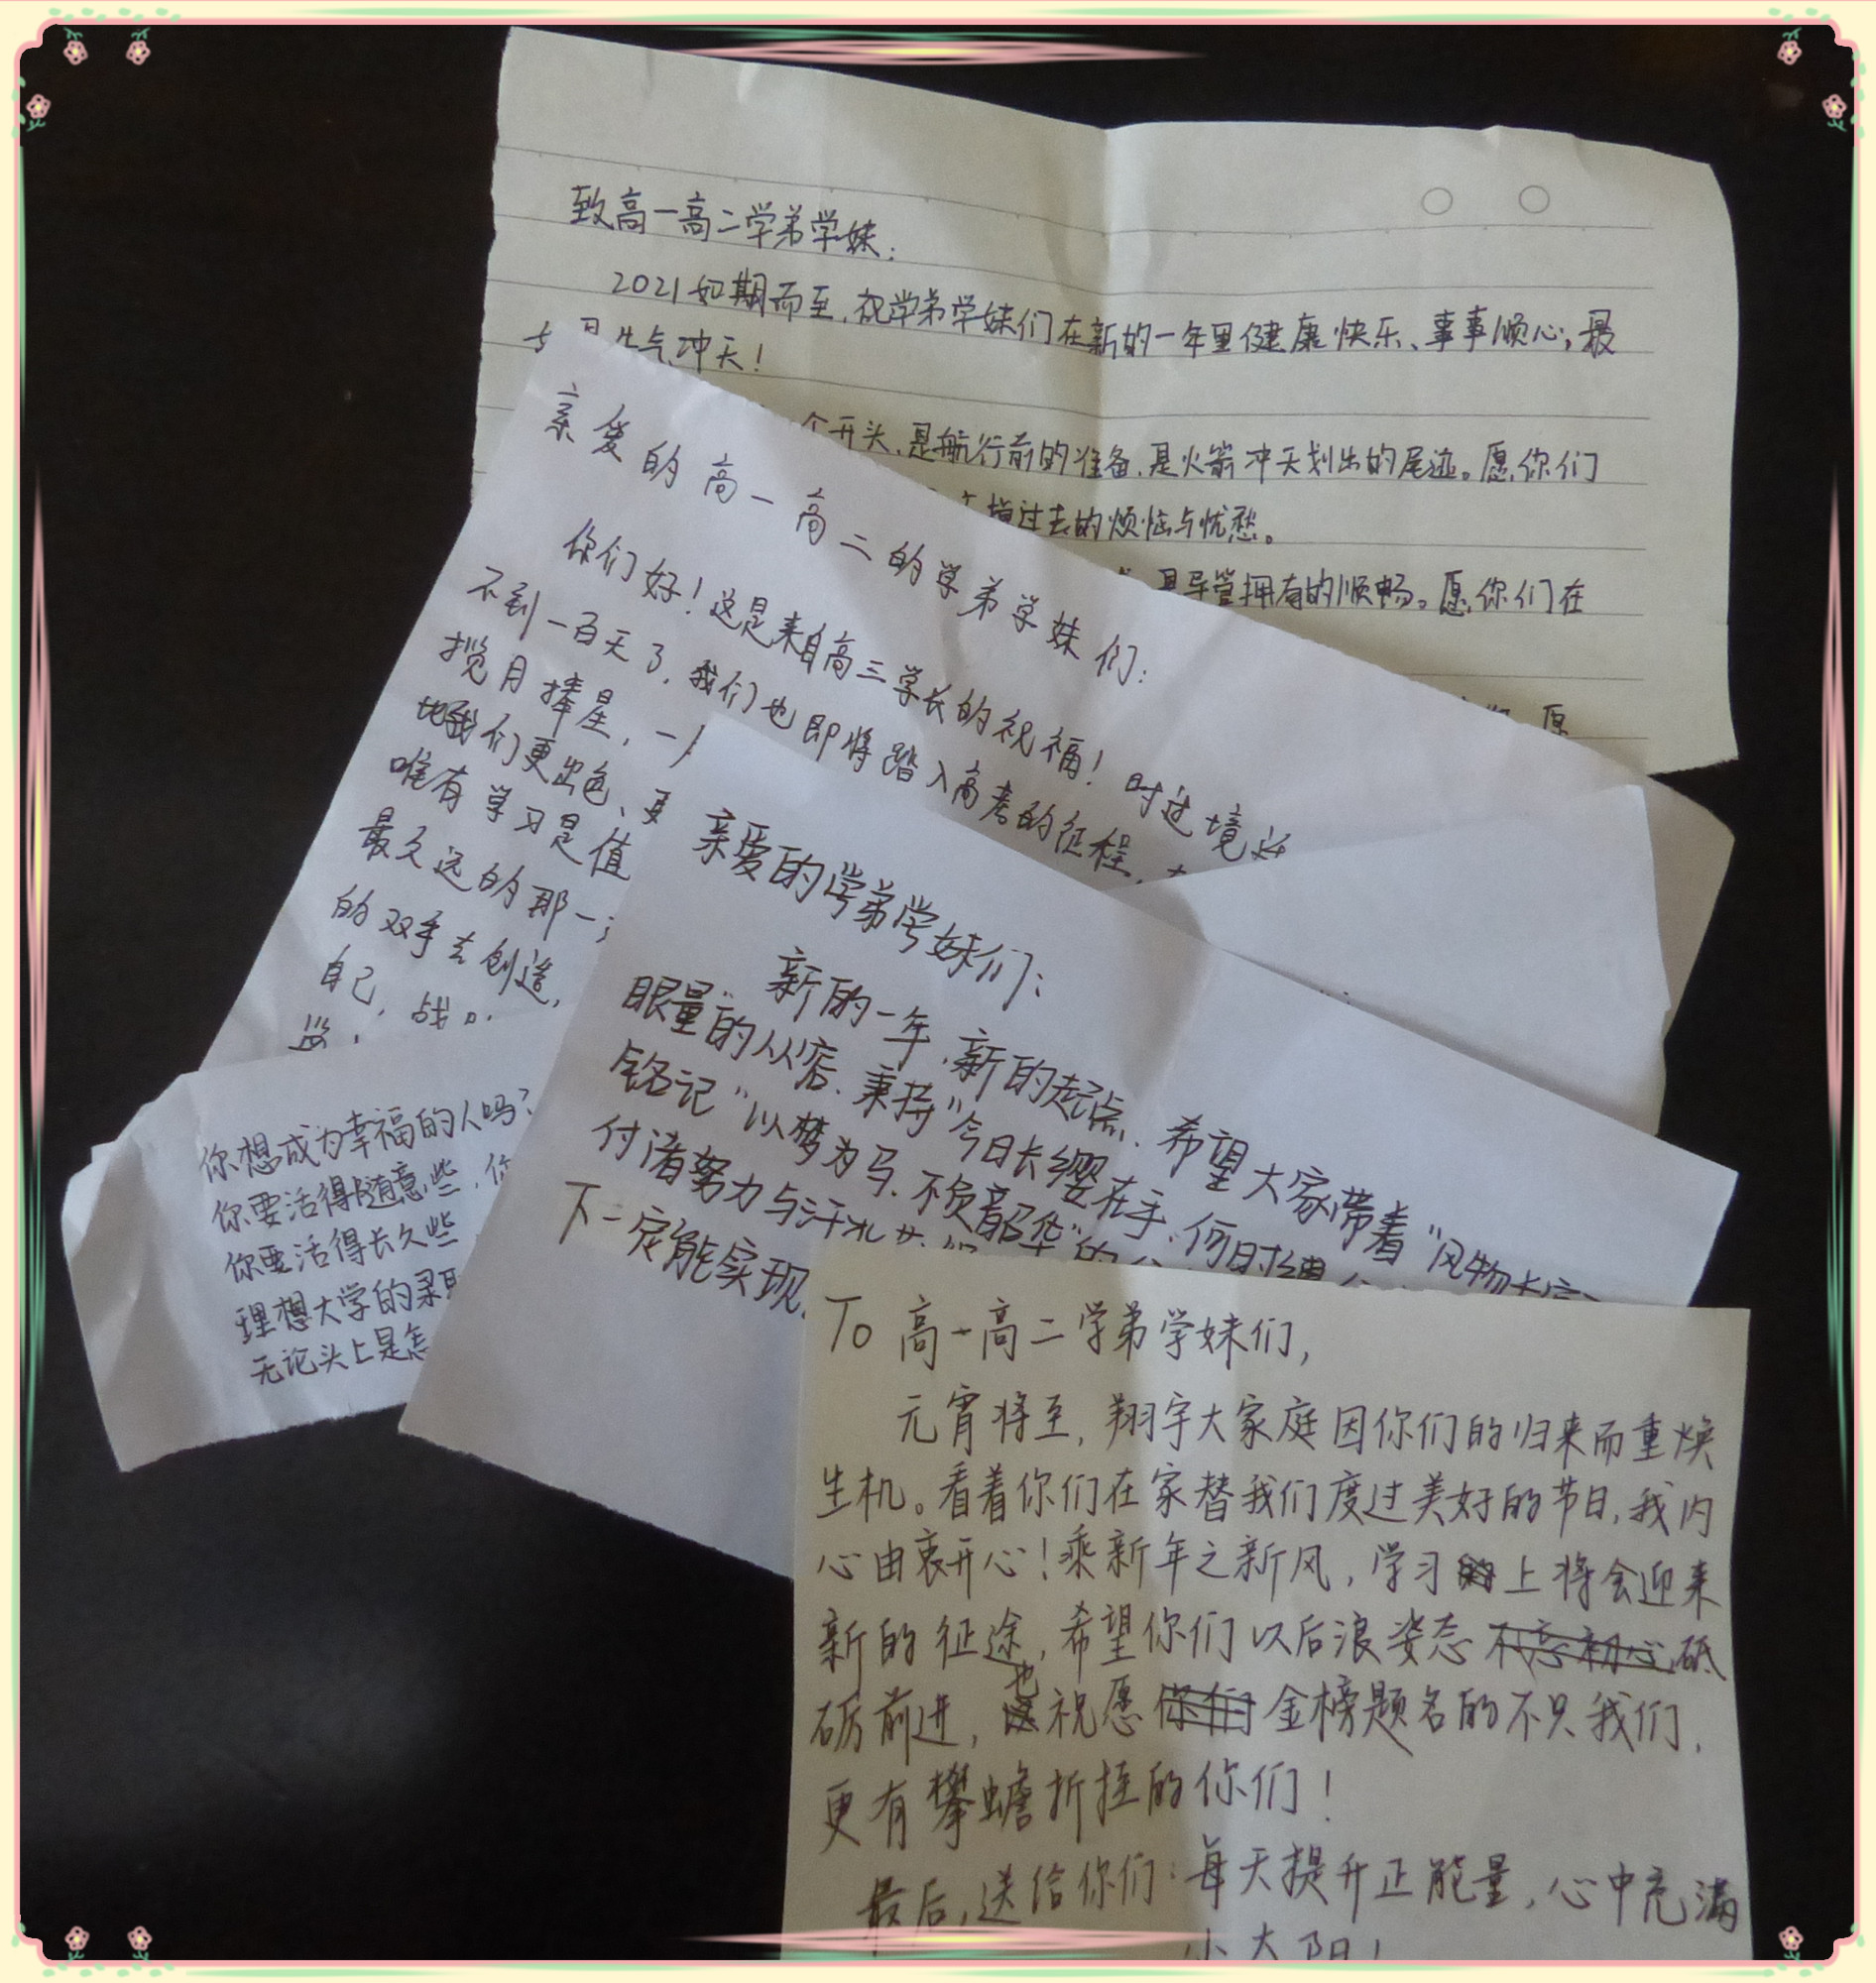 致高一高二学弟学妹:
2021如期而至,祝学弟学妹们在新的一年里健康快乐、事事顺心,最
牛气冲天!
个开头,是航行前的准备,是火箭冲天划出的尾迹。愿你们
掉过去的烦恼与忧愁。
是导管拥有的顺畅。愿你们在
愿
亲爱的高一高二的学弟学妹们:
你们好!这是来自高三学长的祝福!时过境迁
不到一百天了,我们也即将踏入高考的征程,
揽月捧星,一
地我们更出色、更
唯有学习是值
最久远的那一
的双手去创造,
自己,战
亲爱的学弟学妹们:
新的一年,新的起点,希望大家带着“风物长宜
眼量”的从容,秉持“今日长缨在手,何时缚
铭记“以梦为马,不负韶华”的
付诸努力与汗水
下一定能实现
你想成为幸福的人吗?
你要活得随意些,你
你要活得长久些
理想大学的录取
无论头上是怎
To 高一高二学弟学妹们,
元宵将至,翔宇大家庭因你们的归来而重焕
生机。看着你们在家替我们度过美好的节日,我内
心由衷开心!乘新年之新风,学习上将会迎来
新的征途,希望你们以后浪姿态不忘初心砥
砺前进,也祝愿你们金榜题名的不只我们,
更有攀蟾折挂的你们!
最后,送给你们:每天提升正能量,心中充满
小太阳!